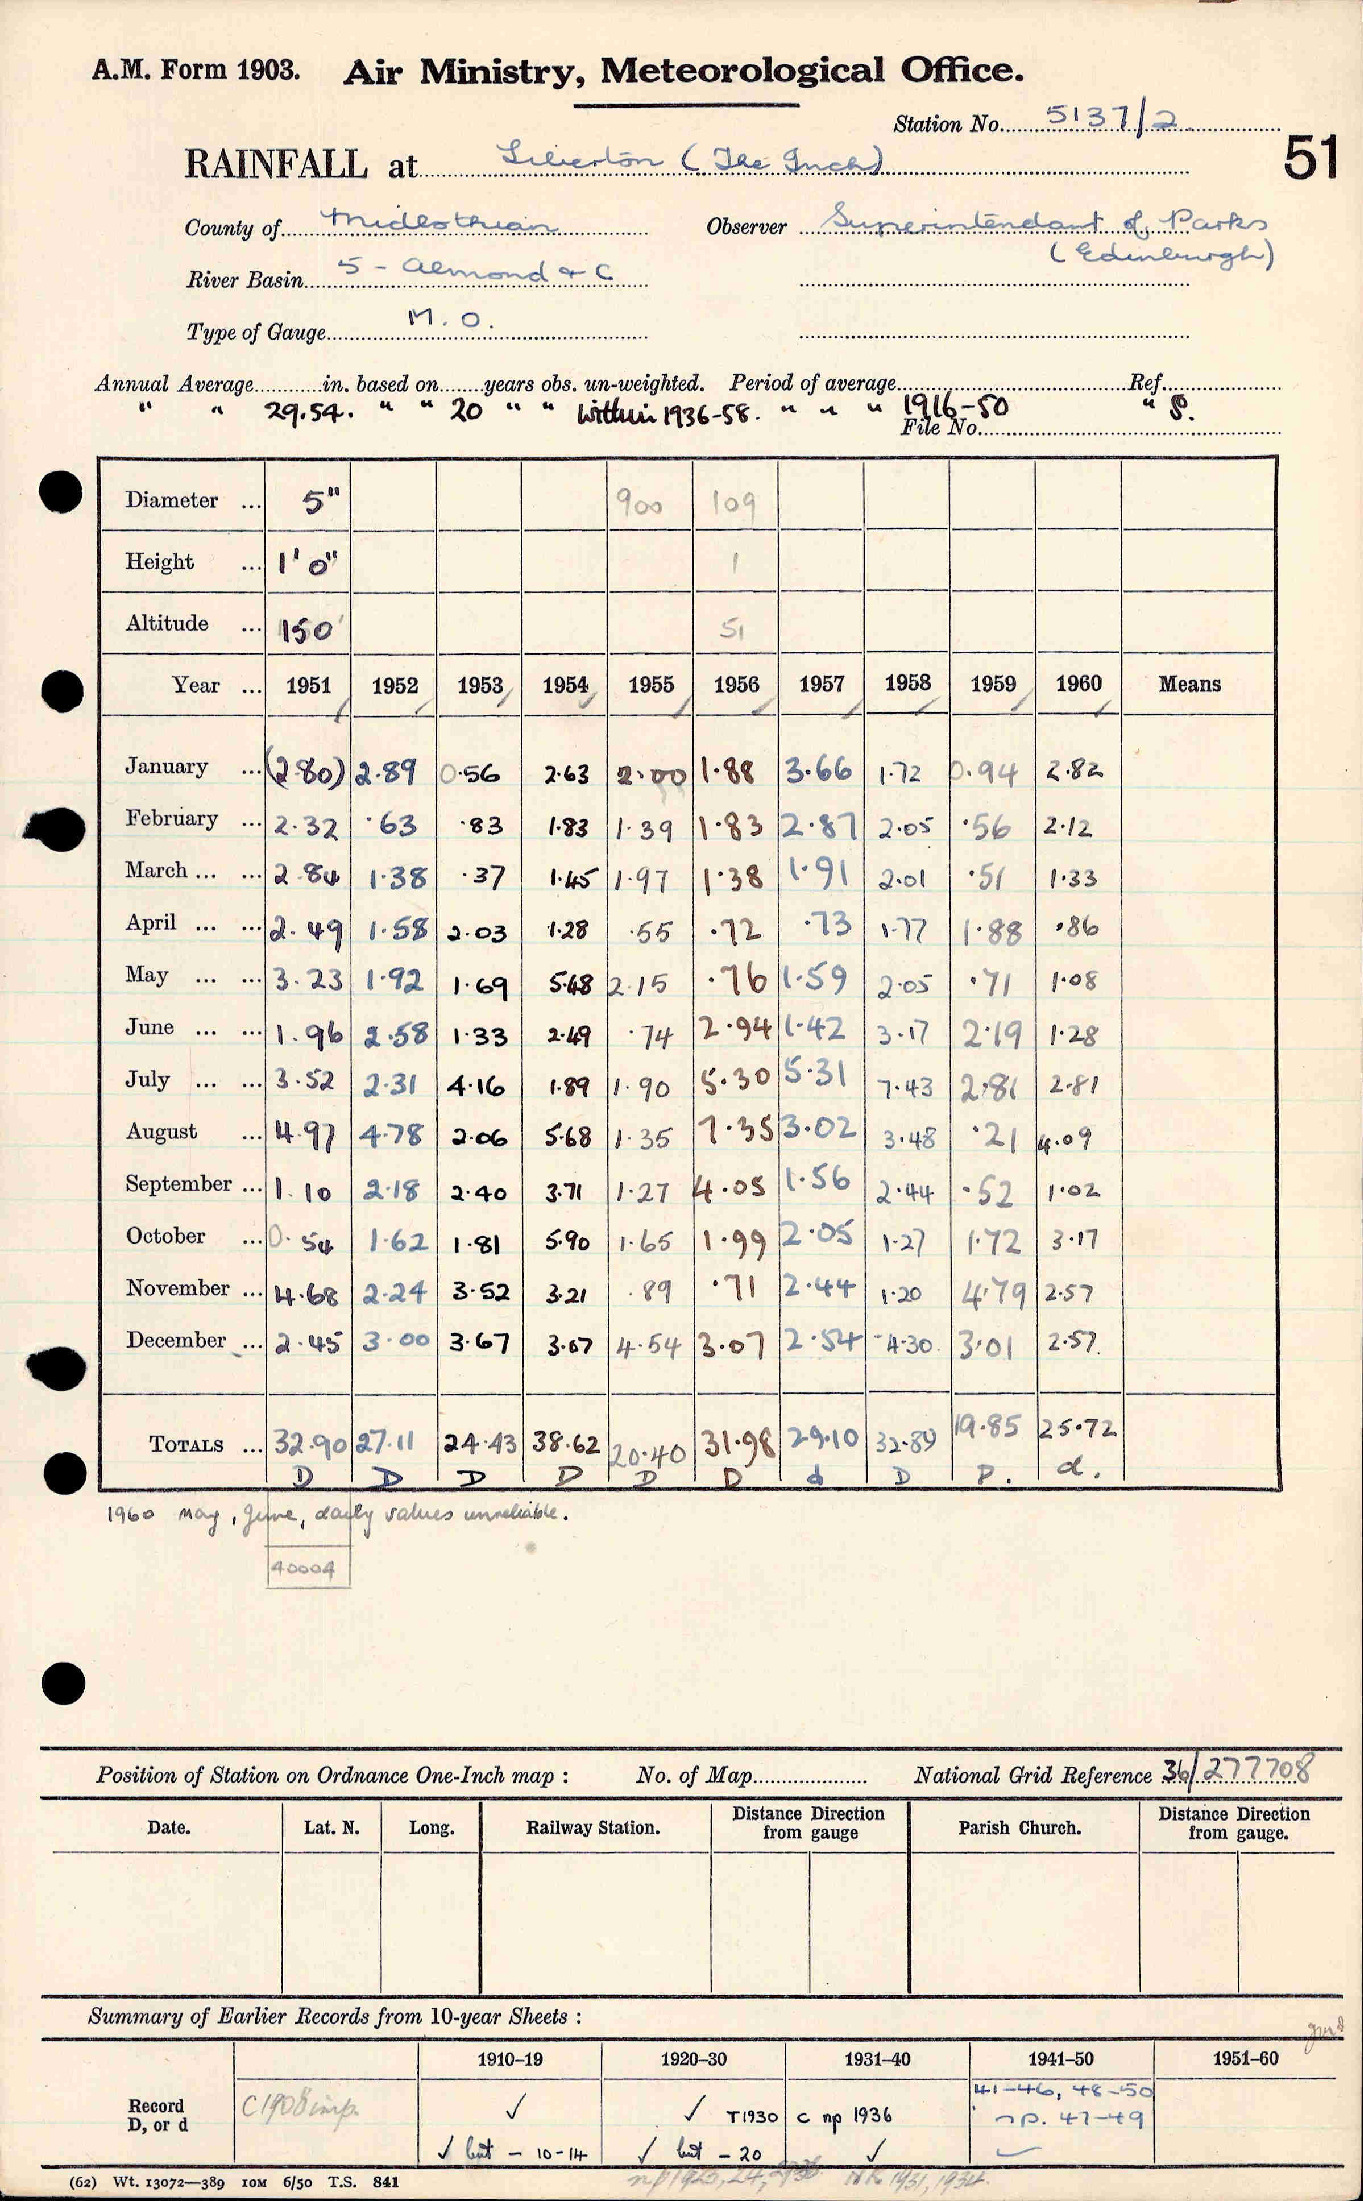 A.M. Form 1903. Air Ministry, Meteorological Office.
Station No. 5137/2
51
RAINFALL at Liberton (The Inch)
County of Midlothian Observer Superintendant of Parks
(Edinburgh)
River Basin 5 - Almond & C
Type of Gauge M.O.
Annual Average in. based on years obs. un-weighted. Period of average Ref.
" " 29.54. " " 20 " " Within 1936-58. " " " 1916-50 " P.
File No.
Diameter ... 5" 900 109
Height ... 1'0" 1
Altitude ... 150' 51
Year ... 1951 1952 1953 1954 1955 1956 1957 1958 1959 1960 Means
January ... (2.80) 2.89 0.56 2.63 2.00 1.88 3.66 1.72 0.94 2.82
February ... 2.32 .63 .83 1.83 1.39 1.83 2.87 2.05 .56 2.12
March ... ... 2.84 1.38 .37 1.45 1.97 1.38 1.91 2.01 .51 1.33
April ... ... 2.49 1.58 2.03 1.28 .55 .72 .73 1.77 1.88 .86
May ... ... 3.23 1.92 1.69 5.48 2.15 .76 1.59 2.05 .71 1.08
June ... ... 1.96 2.58 1.33 2.49 .74 2.94 1.42 3.17 2.19 1.28
July ... ... 3.52 2.31 4.16 1.89 1.90 5.30 5.31 7.43 2.81 2.81
August ... 4.97 4.78 2.06 5.68 1.35 7.35 3.02 3.48 .21 4.09
September ... 1.10 2.18 2.40 3.71 1.27 4.05 1.56 2.44 .52 1.02
October ... 0.54 1.62 1.81 5.90 1.65 1.99 2.05 1.27 1.72 3.17
November ... 4.68 2.24 3.52 3.21 .89 .71 2.44 1.20 4.79 2.57
December ... 2.45 3.00 3.67 3.07 4.54 3.07 2.54 4.30 3.01 2.57
TOTALS ... 32.90 27.11 24.43 38.62 20.40 31.98 29.10 32.89 19.85 25.72
D D D D D D d D P. d.
1960 May, June, daily values unreliable.
40004
Position of Station on Ordnance One-Inch map : No. of Map National Grid Reference 36/277708
Date. Lat. N. Long. Railway Station. Distance Direction from gauge Parish Church. Distance Direction from gauge.
Summary of Earlier Records from 10-year Sheets :
1910-19 1920-30 1931-40 1941-50 1951-60
Record D, or d C1908 imp. ✓ ✓ T1930 c np 1936 41-46, 48-50
np. 47-49
✓ but - 10-14 ✓ but - 20 ✓
(62) Wt. 13072—389 10M 6/50 T.S. 841
1931, 1934.